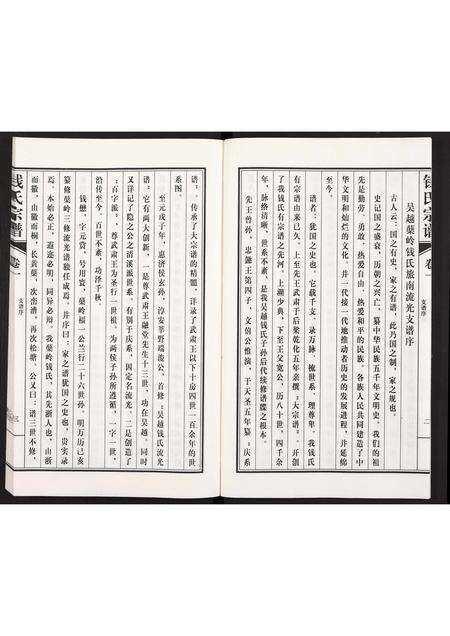 钱氏宗谱
卷一
支谱序
二
吴越蕖岭钱氏旅南流光支谱序
古人云：国之有史，家之有谱，此乃国之制，家之规也。
史记国之盛衰，历朝之兴亡。纂中华民族五千年文明史，我们的祖
先是勤劳、勇敢、热爱自由、热爱和平的民族。各族人民共同建造了中
华文明和灿烂的文化，并一代接一代地推动着历史的发展进程，并延绵
至今。
谱者：犹国之史也。它载千支，录万脉，
世系，理尊卑。我钱氏
有宗谱由来已久，上至先王武肃于后梁乾化五年亲撰《大宗谱》，开创
了我钱氏有宗谱之先河。上溯少典，下至王父宽公，历八十世，四千余
年，脉络清晰，世系不紊，是我吴越钱氏子孙后代续修谱牒之根本。
先王曾孙，忠懿王第四子，文僖公惟演，于天圣五年纂《庆系
谱》，传承了大宗谱的精髓，详录了武肃王以下十房四世一百余年的世
系图。
至元戊子年，惠济侯玄孙，淳安莘野端浚公，首修《吴越钱氏流光
谱》，它有两大创新，一是尊武肃王融堂先生十三世，功在吴越，同时
又详记了隐之公之清溪派世系，有别于庆系，固定名流光。二是创造了
百字派，尊武肃王为圣行一世祖，为两侯子孙所遵循，一字一世，
沿传至今，百世不紊，功泽千秋。
钱懋，字元赏，号用寰，蕖岭福一公兰行二十六世孙，明万历己亥
纂修蕖岭三修流光谱独任成焉，并序曰：家之谱犹国之史也，贵实录
焉，本始必正，遐迩必明，同异必辩，我蕖岭钱氏，其先浙人也，由浙
而徽，由徽而桐，长黄蕖，次峦清，再次松塘，公又曰：谱三世不修，
钱氏宗谱
卷一
支谱序